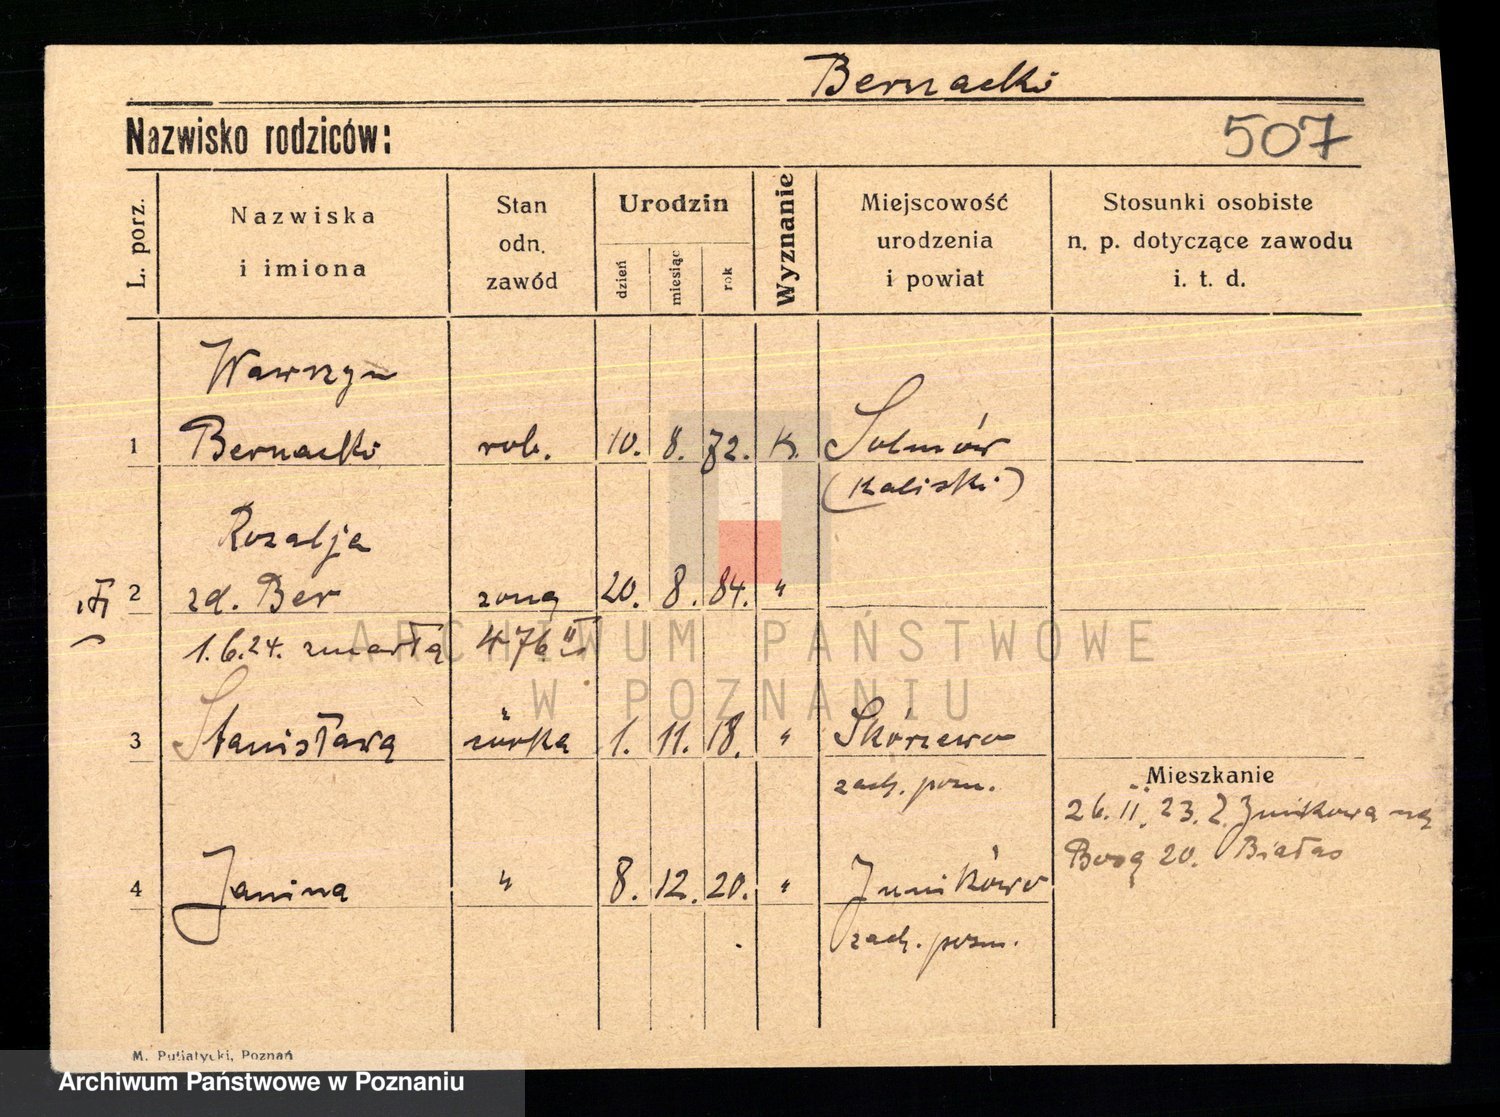 Bernacki
Nazwisko rodziców:
507
L. porz.
Nazwiska
i imiona
Stan
odn.
zawód
Urodzin
dzień
miesiąc
rok
Wyznanie
Miejscowość
urodzenia
i powiat
Stosunki osobiste
n. p. dotyczące zawodu
i. t. d.
Wawrzyn
1 Bernacki rob. 10. 8. 72. K. Solmów
(Kaliski)
Rozalja
2 zd. Ber żona 20. 8. 84. "
1.6.24. zmarła 476 II
3 Stanisława córka 1. 11. 18. " Skórzewo
zach. pozn.
Mieszkanie
26.II.23. Z Junikowa na
20. Białas
4 Janina " 8. 12. 20. " Junikowo
zach. pozn.
M. Putiatycki, Poznań
ARCHIWUM PAŃSTWOWE
W POZNANIU
Archiwum Państwowe w Poznaniu